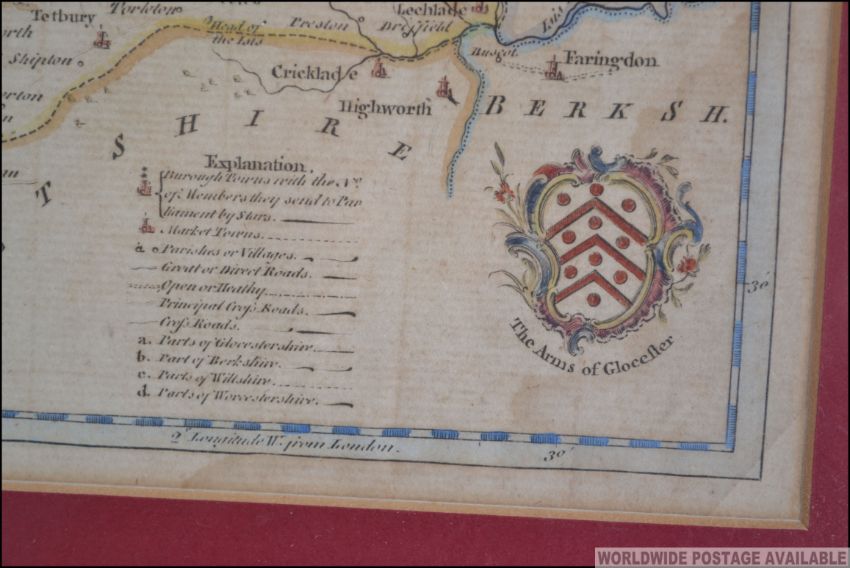 Tetbury
Torleton
Lechlade
Head of
the Isis
Preston
Driffield
Isis
orth
Shipton
Cricklade
Buscot
Faringdon
erton
Highworth
BERKSH.
TSHIRE
an
Explanation.
Burough Towns with the No.
of Members they send to Par
liament by Stars.
Market Towns.
a o Parishes or Villages.
Great or Direct Roads.
Open or Heathy
Principal Croſs Roads.
Croſs Roads.
a. Parts of Glocestershire.
b. Part of Berkshire.
c. Parts of Wiltshire.
d. Parts of Worcestershire.
The Arms of Gloceſter
30'
2d. Longitude W. from London.
30'
WORLDWIDE POSTAGE AVAILABLE